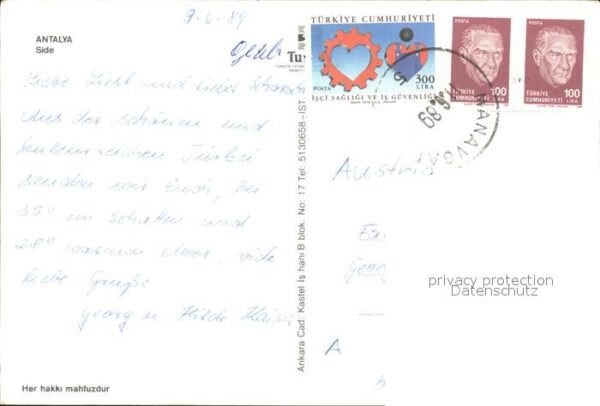 9.6.89
ANTALYA
Side
Liebe Liesl und lieber
Aus der schönen und
kulturreichen Türkei
senden wir Euch, bei
35° im Schatten und
28° warmem Meer, viele
liebe Grüße
Georg u. Hilde
Her hakkı mahfuzdur
Ankara Cad: Kastel İş hanı B blok. No: 17 Tel: 5130658-İST
TÜRKİYE CUMHURİYETİ
POSTA
300
LİRA
İŞÇİ SAĞLIĞI VE İŞ GÜVENLİĞİ
POSTA
100
TÜRKİYE
CUMHURİYETİ
LİRA
POSTA
100
TÜRKİYE
CUMHURİYETİ
LİRA
MANAVGAT
Austria
Georg
privacy protection
Datenschutz
A